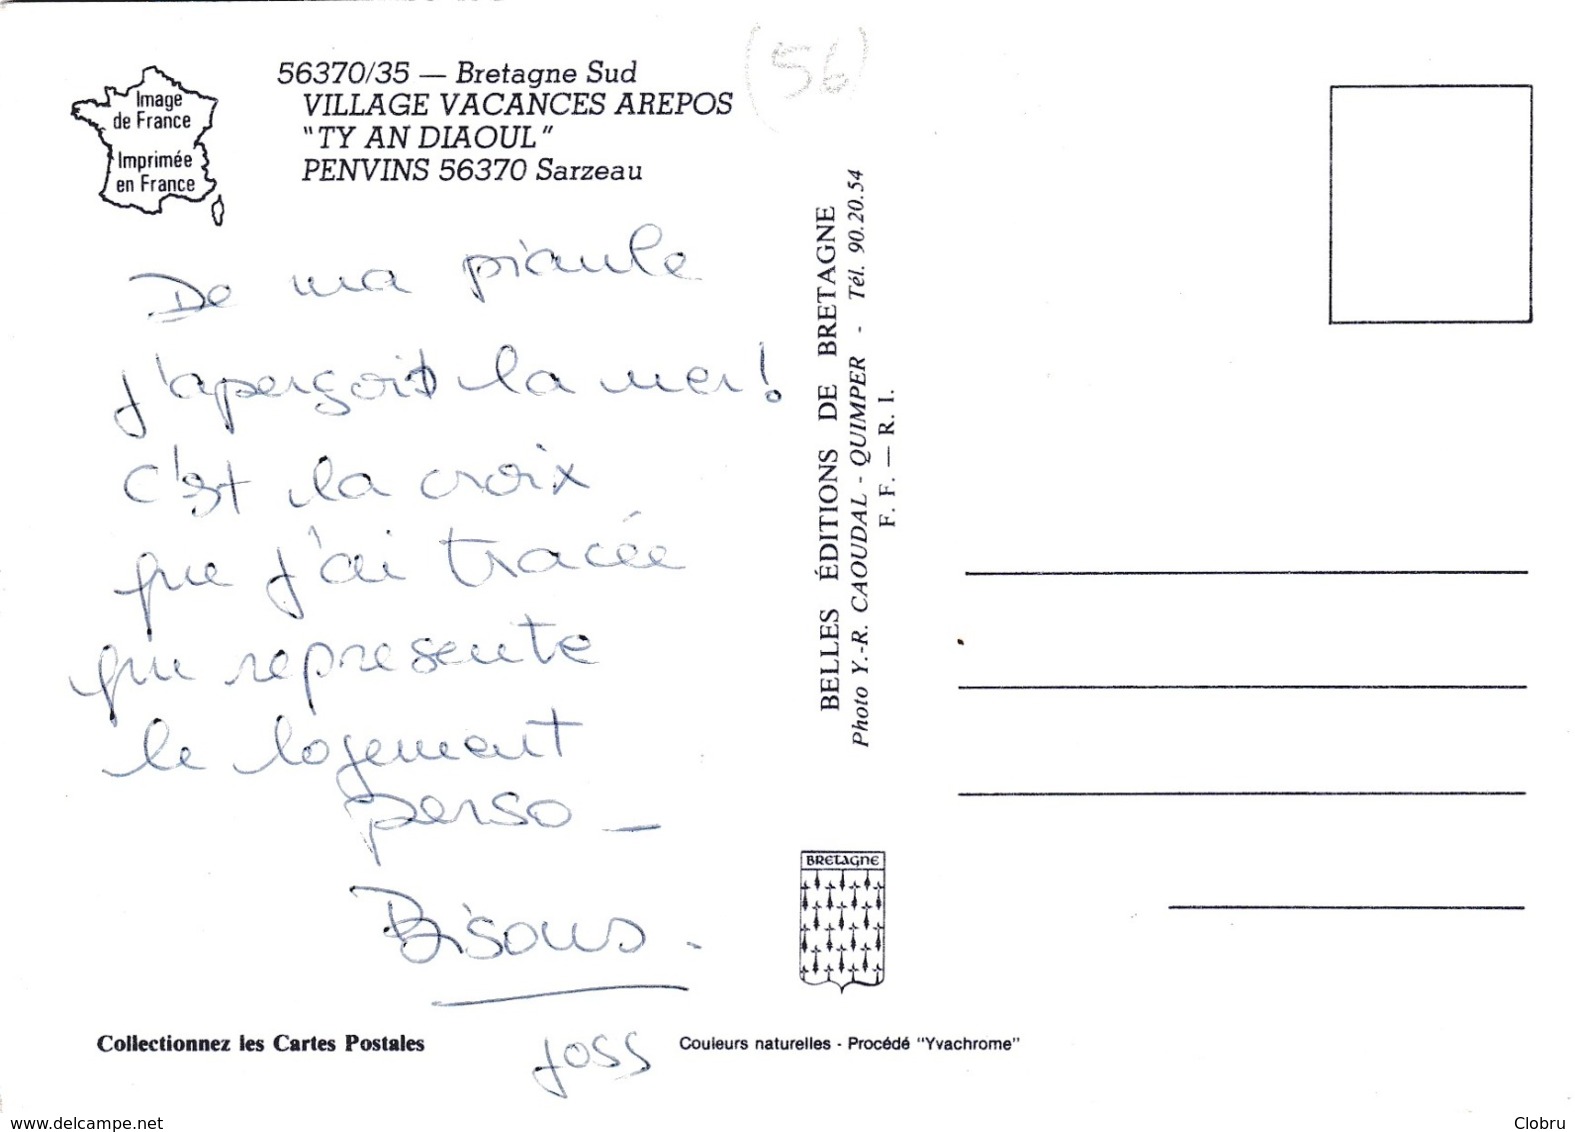 Image
de France
Imprimée
en France
56370/35 — Bretagne Sud
VILLAGE VACANCES AREPOS
"TY AN DIAOUL"
PENVINS 56370 Sarzeau
(56)
De ma piaule
j'aperçois la mer!
c'est la croix
que j'ai tracée
qui represente
le logement
perso —
Bisous.
Joss
BELLES ÉDITIONS DE BRETAGNE
Photo Y.-R. CAOUDAL - QUIMPER - Tél. 90.20.54
F. F. — R. I.
BRETAGNE
Collectionnez les Cartes Postales
Couleurs naturelles - Procédé "Yvachrome"
www.delcampe.net
Clobru